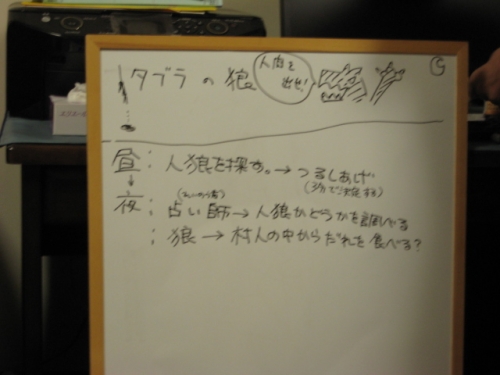 タブラの狼
人肉を
出せ!
昼: 人狼を探す。→つるしあげ
(3分で決定する)
夜: 占い師→人狼かどうかを調べる
: 狼→村人の中からだれを食べる?